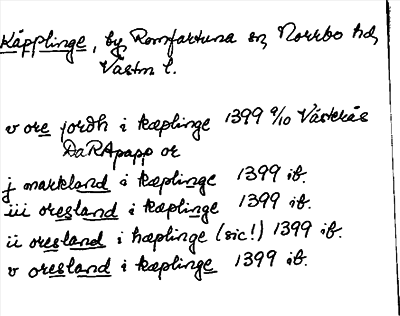 Käpplinge, by Romfartuna sn, Norrbo hd,
Västm l.
v ore jordh i kæplinge 1399 9/10 Västerås
DaRApapp or
j markland i kæplinge 1399 ib.
iii oresland i kæplinge 1399 ib.
ii oresland i hæplinge (sic!) 1399 ib.
v oresland i kæplinge 1399 ib.